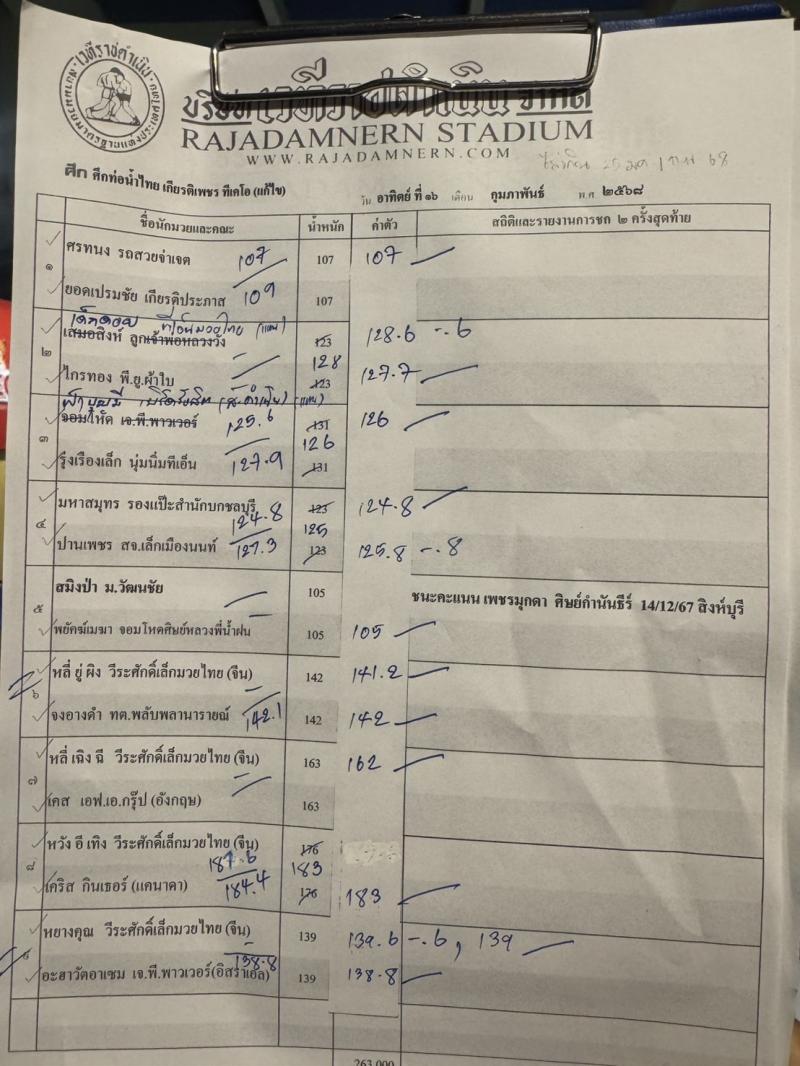 เวทีราชดำเนิน
บริษัท เวทีราชดำเนิน จำกัด
RAJADAMNERN STADIUM
WWW.RAJADAMNERN.COM
ศึก ศึกท่อน้ำไทย เกียรติเพชร ทีเคโอ (แก้ไข)
วัน อาทิตย์ ที่ ๑๖ เดือน กุมภาพันธ์ พ.ศ ๒๕๖๘
ชื่อนักมวยและคณะ น้ำหนัก ค่าตัว สถิติและรายงานการชก ๒ ครั้งสุดท้าย
๑ ศรทนง รถสวยจ่าเจต 107 107 107
ยอดเปรมชัย เกียรติประภาส 109 107
(แทน)
๒ เสมอสิงห์ ลูกเจ้าพ่อหลวงวัง 123 128.6 -.6
128
ไกรทอง พี.ยู.ผ้าใบ 123 127.7
(แทน)
๓ จอมโหด เจ.พี.พาวเวอร์ 125.6 131 126
126
รุ่งเรืองเล็ก นุ่มนิ่มทีเอ็น 127.9 131
๔ มหาสมุทร รองแป๊ะสำนักบกชลบุรี 124.8 123 124.8
125
ปานเพชร สจ.เล็กเมืองนนท์ 127.3 123 125.8 -.8
๕ สมิงป่า ม.วัฒนชัย 105 ชนะคะแนน เพชรมุกดา ศิษย์กำนันธีร์ 14/12/67 สิงห์บุรี
พยัคฆ์เมฆา จอมโหดศิษย์หลวงพี่น้ำฝน 105 105
๖ หลี่ ยู่ ผิง วีระศักดิ์เล็กมวยไทย (จีน) 142 141.2
จงอางดำ ทต.พลับพลานารายณ์ 142.1 142 142
๗ หลี่ เฉิง ฉี วีระศักดิ์เล็กมวยไทย (จีน) 163 162
เคส เอฟ.เอ.กรุ๊ป (อังกฤษ) 163
๘ หวัง อี เทิง วีระศักดิ์เล็กมวยไทย (จีน) 176
187.6 183
เคริส กินเธอร์ (แคนาดา) 184.4 176 183
หยางคุณ วีระศักดิ์เล็กมวยไทย (จีน) 139 139.6 -.6, 139
138.8
อะฮาวัตอาเซม เจ.พี.พาวเวอร์(อิสราเอล) 139 138.8
263,000